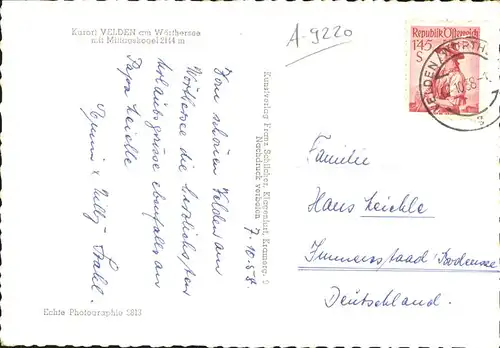 Kurort VELDEN am Wörthersee
mit Mittagskogel 2144 m
A-9220
7.10.58
Vom schönen Velden am
Wörthersee die herzlichsten
Urlaubsgrüsse ebenfalls an
Papa Leichle
Willy
Echte Photographie 5813
Kunstverlag Franz Schilcher, Klagenfurt, Kramerg. 9
Nachdruck verboten
Republik Österreich
1.45
S
VELDEN
Familie
Hans Leichle
Immenstaad /Bodensee
Deutschland.